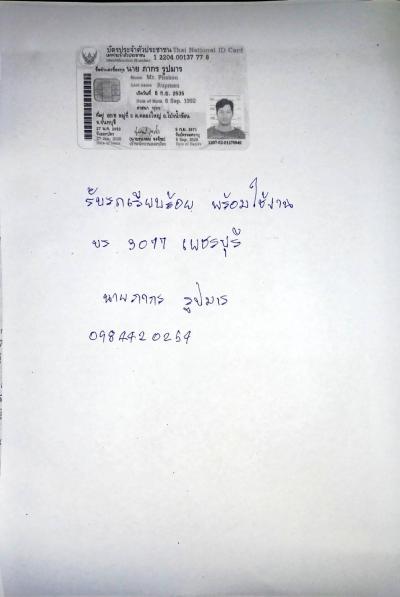 บัตรประจำตัวประชาชน Thai National ID Card
เลขประจำตัวประชาชน
Identification Number
1 2204 00137 77 8
ชื่อตัวและชื่อสกุล นาย ภากร รูปมาร
Name Mr. Phakon
Last name Rupman
เกิดวันที่ 8 ก.ย. 2535
Date of Birth 8 Sep. 1992
ศาสนา พุทธ
รับรถเรียบร้อย พร้อมใช้งาน
3077 เพชรบุรี
นายภากร รูปมาร
0984420254